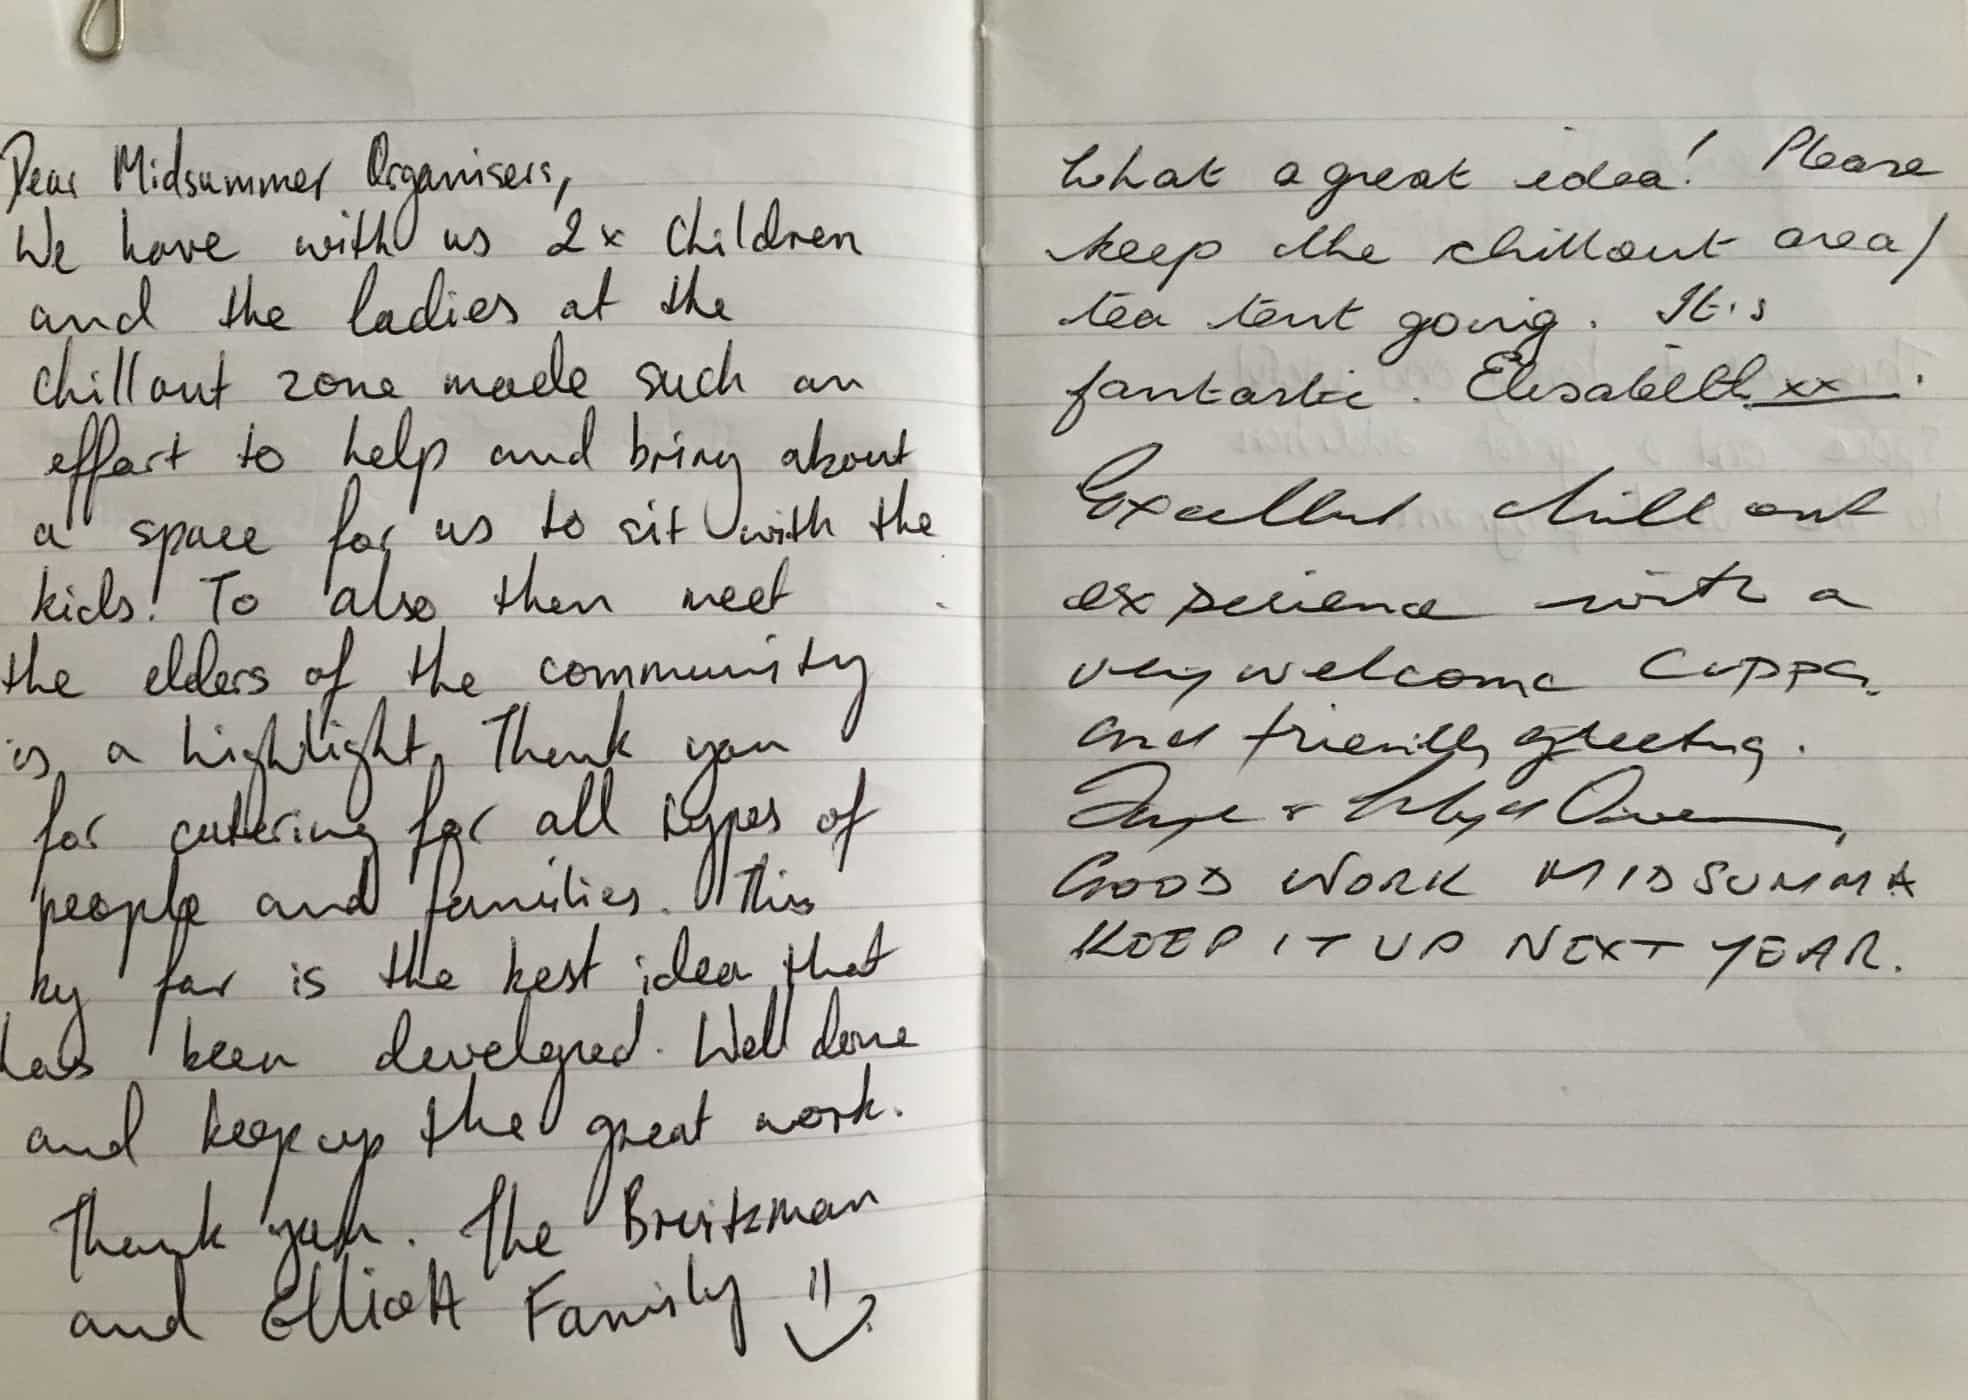 Dear Midsummer Organisers,
We have with us 2x Children
and the ladies at the
chillout zone made such an
effort to help and bring about
a space for us to sit with the
kids! To also then meet
the elders of the community
is a highlight. Thank you
for catering for all types of
people and families. This
by far is the best idea that
has been developed. Well done
and keep up the great work.
Thank you. The Breitkman
and Elliott Family
What a great idea! Please
keep the chillout area/
tea tent going. It is
fantastic. Elisabeth xx.
Excellent chill out
experience with a
very welcome cuppa
and friendly greeting.
& Owen
GOOD WORK MIDSUMMA
KEEP IT UP NEXT YEAR.